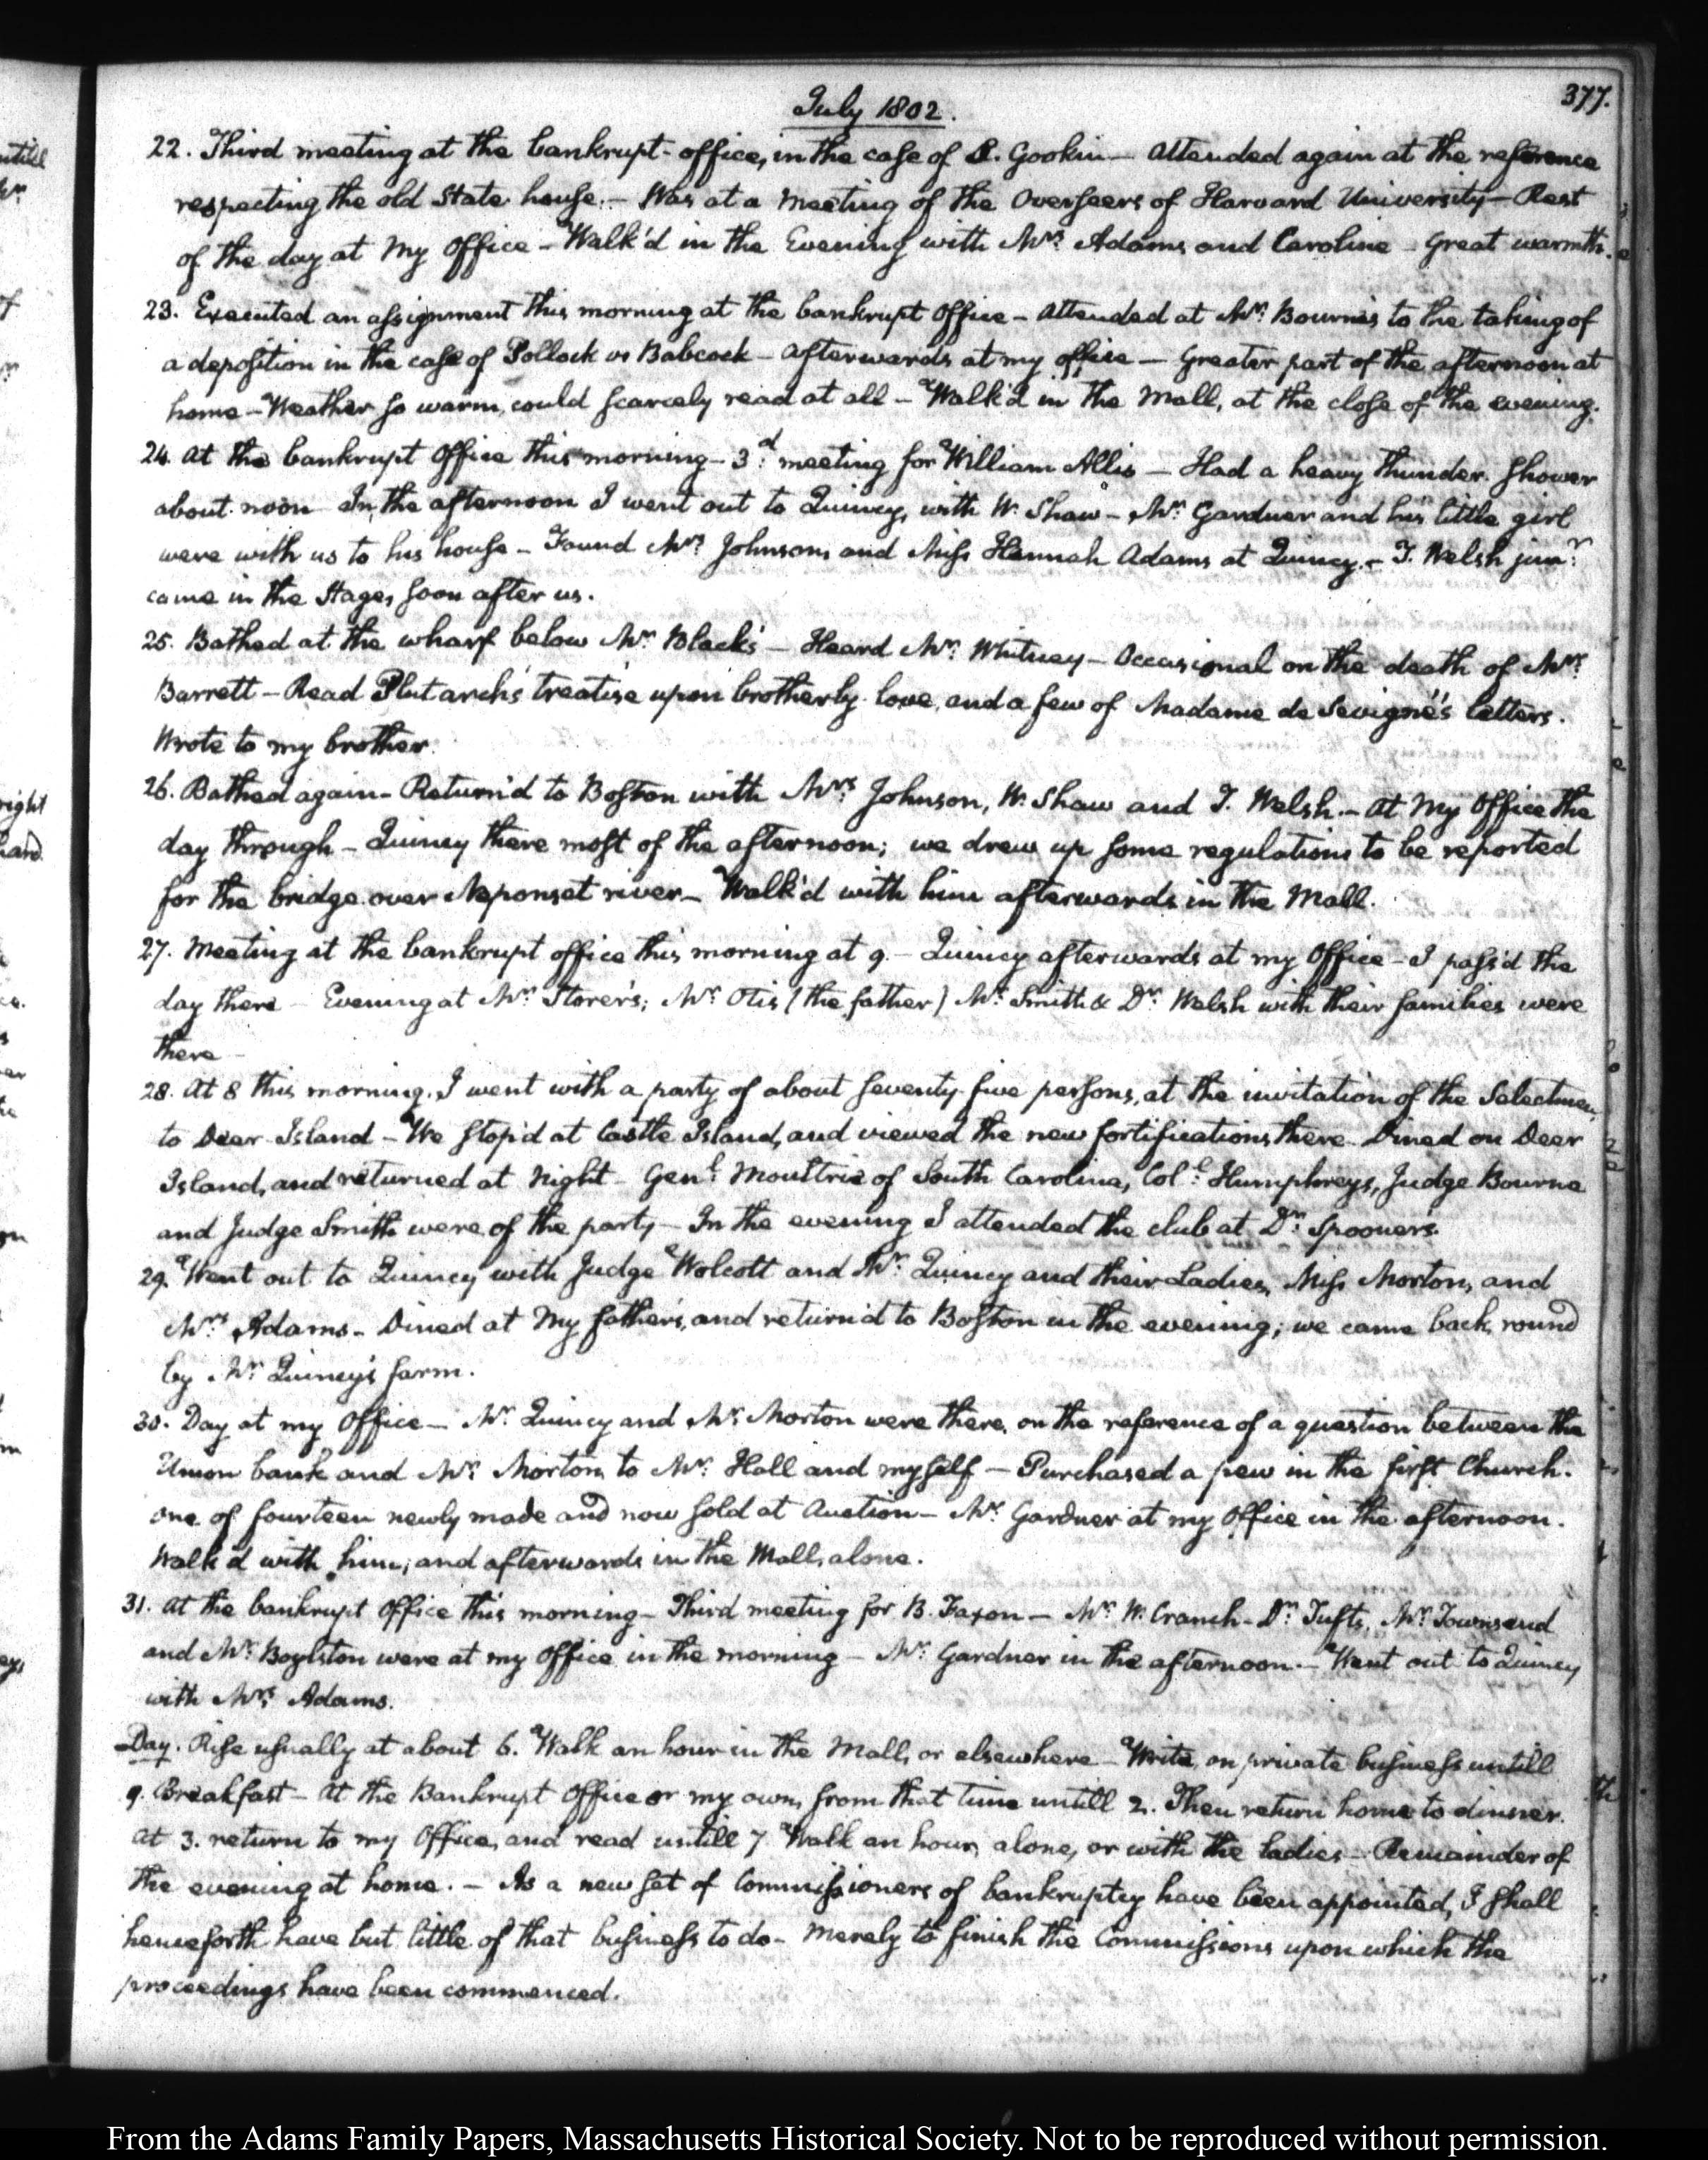 377.
July 1802.
22. Third meeting at the bankrupt-office, in the case of S. Gookin — Attended again at the reference
respecting the old State house. – Was at a Meeting of the Overseers of Harvard University – Rest
of the day at my Office – Walk'd in the Evening with Mrs. Adams and Caroline – Great warmth.
23. Executed an assignment this morning at the bankrupt Office – Attended at Mr. Bourne's to the taking of
a deposition in the case of Pollock vs Babcock – Afterwards at my office — Greater part of the afternoon at
home – Weather so warm, could scarcely read at all – Walk'd in the Mall, at the close of the evening.
24. At the bankrupt Office this morning – 3d. meeting for William Allis — Had a heavy thunder shower
about noon – In the afternoon I went out to Quincy, with W. Shaw – Mr. Gardner and his little girl
were with us to his house – Found Mrs. Johnson, and Miss Hannah Adams at Quincy. – T. Welsh junr.
came in the Stage, soon after us.
25. Bathed at the wharf below Mr. Black's — Heard Mr. Whitney – Occasional on the death of Mrs.
Barrett – Read Plutarch's treatise upon brotherly love, and a few of Madame de Sevigné's letters.
Wrote to my brother.
26. Bathed again – Return'd to Boston with Mrs. Johnson, W. Shaw and T. Welsh. – At my Office the
day through – Quincy there most of the afternoon; we drew up some regulations to be reported
for the bridge over Neponset river – Walk'd with him afterwards in the Mall.
27. Meeting at the bankrupt office this morning at 9. – Quincy afterwards at my Office – I pass'd the
day there – Evening at Mr. Storer's; Mr. Otis (the father) Mr. Smith & Dr. Welsh with their families were
there –
28. At 8 this morning, I went with a party of about seventy-five persons, at the invitation of the Selectmen,
to Deer-Island – We stop'd at Castle Island, and viewed the new fortifications there. Dined on Deer
Island, and returned at Night – Genl. Moultrie of South Carolina, Coll. Humphreys, Judge Bourne
and Judge Smith were of the party – In the evening I attended the club at Dr. Spooner's.
29. Went out to Quincy with Judge Wolcott and Mr. Quincy and their Ladies, Miss Morton, and
Mrs. Adams – Dined at my father's, and return'd to Boston in the evening; we came back round
by Mr. Quincy's farm.
30. Day at my Office — Mr. Quincy and Mr. Morton were there, on the reference of a question between the
Union bank and Mr. Morton, to Mr. Hall and myself — Purchased a pew in the first Church.
one of fourteen newly made and now sold at Auction – Mr. Gardner at my Office in the afternoon.
Walk'd with him; and afterwards in the Mall, alone.
31. At the bankrupt Office this morning – Third meeting for B. Faxon — Mr. W. Cranch – Dr. Tufts, Mr. Townsend
and Mr. Boylston were at my Office in the morning — Mr. Gardner in the afternoon. – Went out to Quincy
with Mrs. Adams.
Day. Rise usually at about 6. Walk an hour in the Mall, or elsewhere – Write, on private business untill
9. Breakfast – At the Bankrupt Office or my own, from that time untill 2. Then return home to dinner.
At 3. return to my Office, and read untill 7 Walk an hour, alone, or with the ladies – Remainder of
the evening at home. – As a new set of Commissioners of bankruptcy have been appointed, I shall
henceforth have but little of that business to do – Merely to finish the Commissions upon which the
proceedings have been commenced.
From the Adams Family Papers, Massachusetts Historical Society. Not to be reproduced without permission.